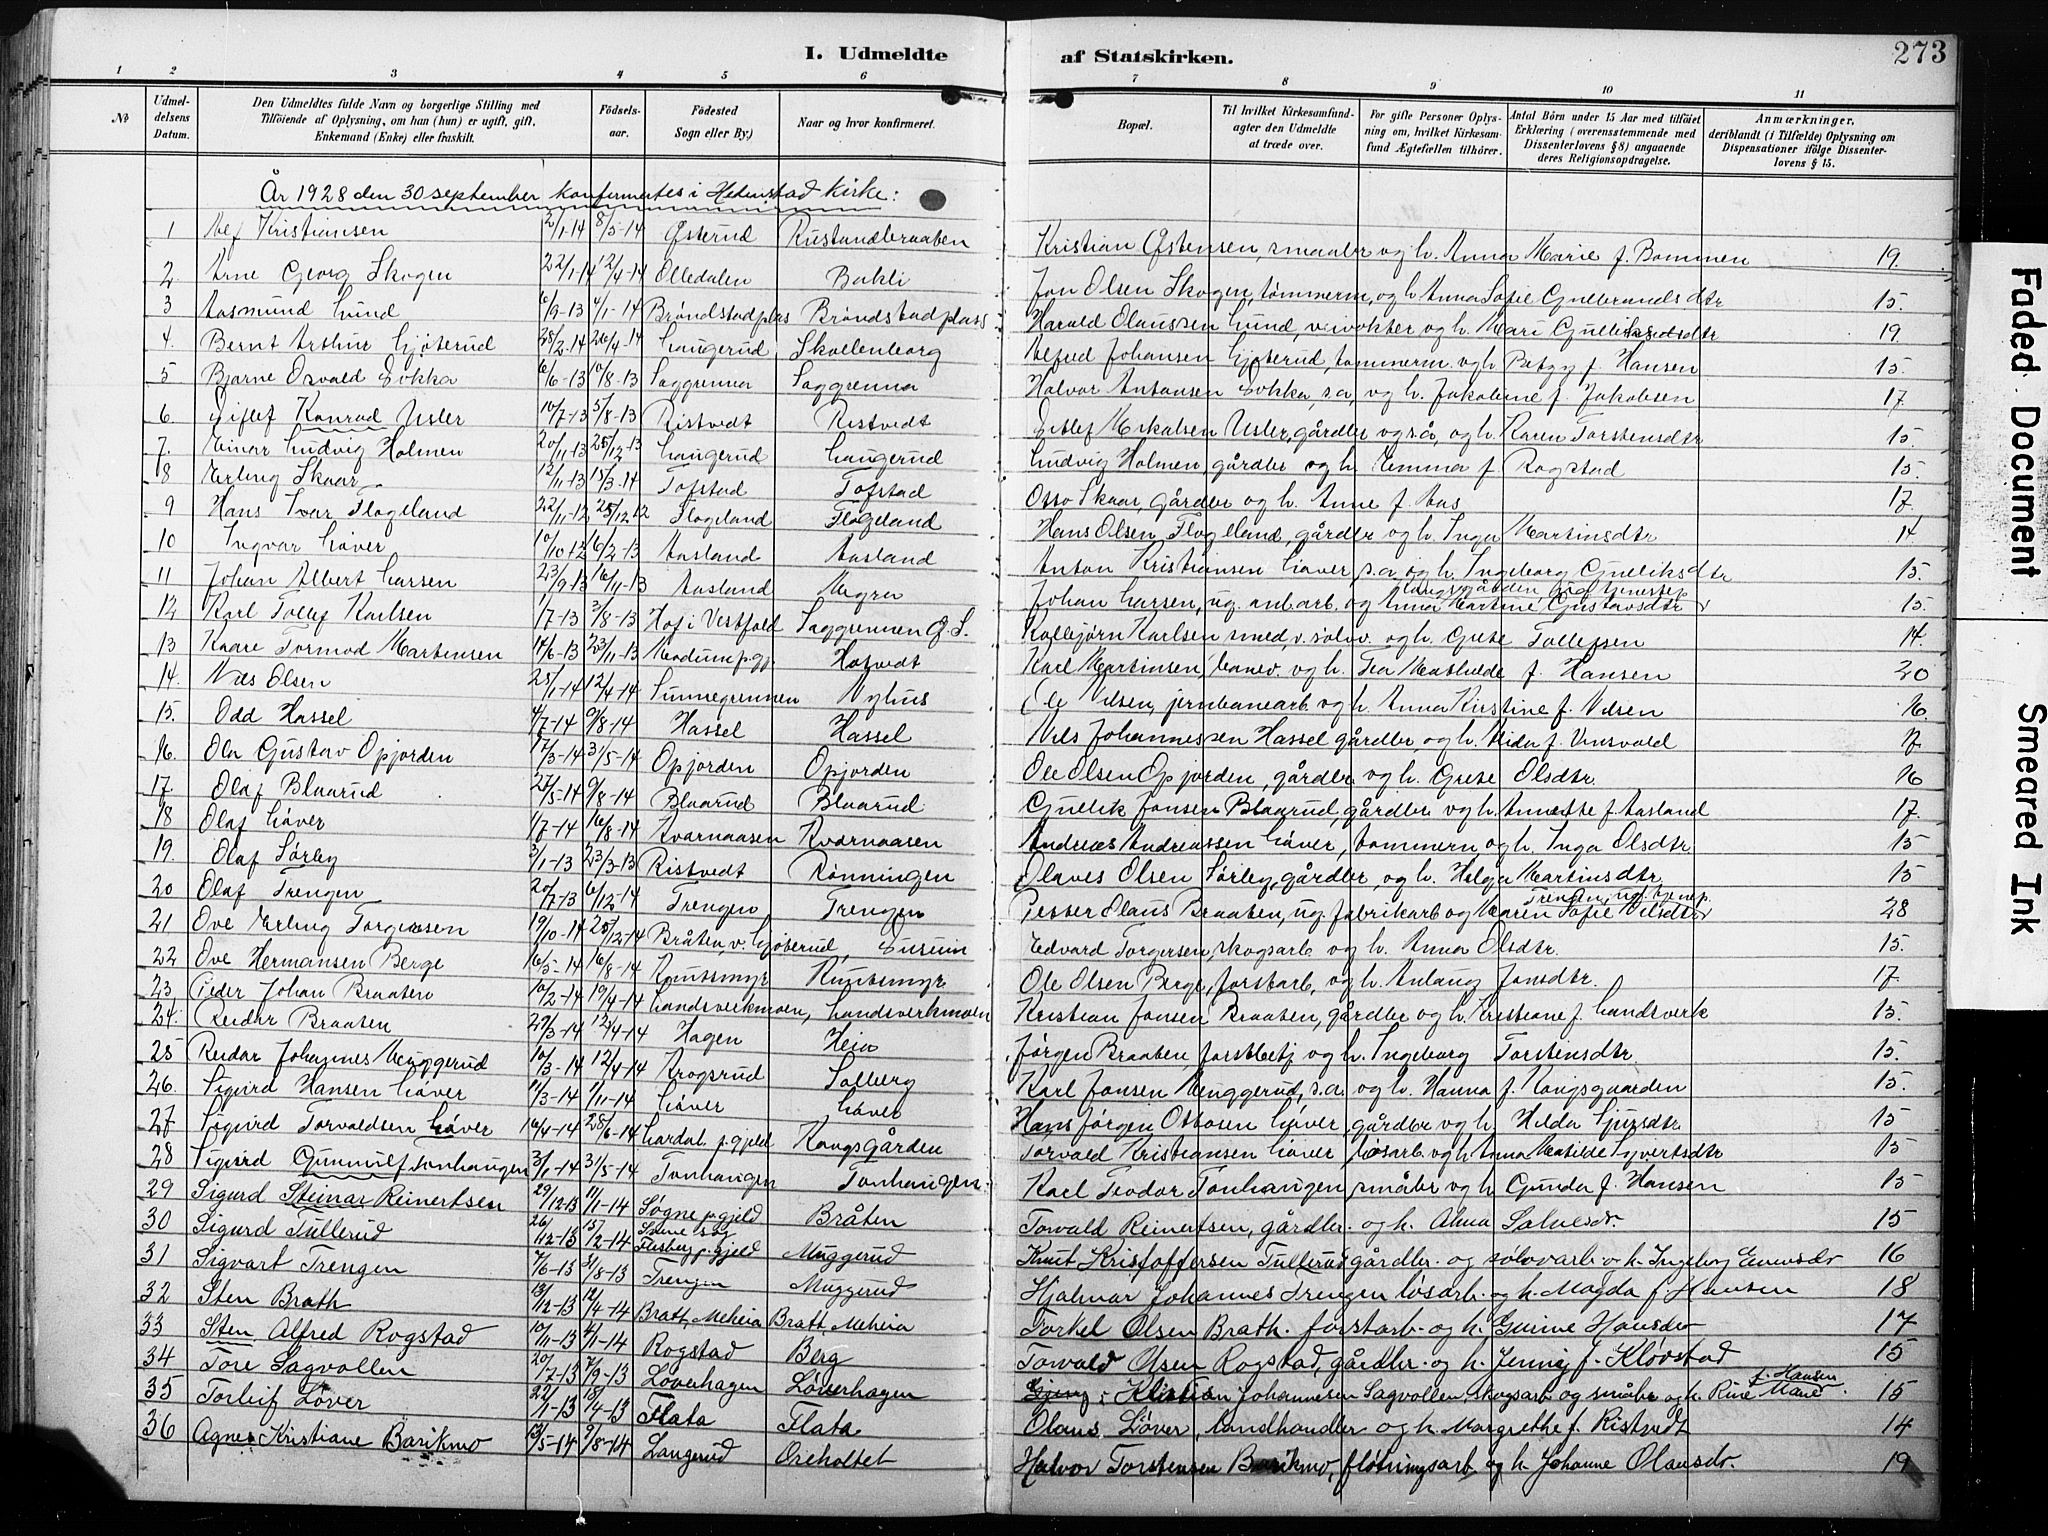 I. Udmeldte af Statskirken.
273
1 2 3 4 5 6 7 8 9 10 11
No
Udmeldelsens Datum.
Den Udmeldtes fulde Navn og borgerlige Stilling med Tilföiende af Oplysning, om han (hun) er ugift, gift, Enkemand (Enke) eller fraskilt.
Födselsaar.
Födested Sogn eller By.)
Naar og hvor konfirmeret.
Bopæl.
Til hvilket Kirkesamfund agter den Udmeldte at træde over.
For gifte Personer Oplysning om, hvilket Kirkesamfund Ægtefællen tilhörer.
Antal Börn under 15 Aar med tilföiet Erklæring (overensstemmende med Dissenterlovens § 8) angaaende deres Religionsopdragelse.
Anmærkninger, deriblandt (i Tilfælde) Oplysning om Dispensationer ifölge Dissenterlovens § 15.
År 1928 den 30 september konfirmertes i Hedenstad kirke:
1 Alf Kristiansen 2/1-14 8/5-14 Østerud Rustandbraaten Kristian Østensen, smaabr og h. Anna Marie f. Bommen 19.
2 Arne Georg Skogen 22/1-14 12/4-14 Olledalen Bakli Jon Olsen Skogen, tømmerm, og h Anna Sofie Gulbrandsdtr 15.
3 Aasmund Lund 6/9-13 4/1-14 Brøndstadplas Brøndstadplass Harald Olaussen Lund, veivokter og h. Mari Gulliksdtr 19
4. Bernt Arthur Gjøterud 28/2-14 26/4-14 Langerud Skollenborg Alfred Johansen Gjøterud, tømmerm. og h. Betzy f. Hansen 15.
5 Bjarne Osvald Sokka 6/6-13 10/8-13 Saggrenna Saggrenna Halvor Antonsen Sokka, s.a, og h. Jakobine f. Jakobsen 17.
6. Ditlef Konrad Usler 10/7-13 5/8-13 Ristvedt Ristvedt Ditlef Mikalsen Usler, gårdbr og s.a. og h. Karen Torstensdtr 15.
7. Einar Ludvig Holmen 20/11-13 25/12-13 Langerud Langerud Ludvig Holmen, gårdbr og h. Emma f. Rogstad 15.
8 Erling Skaar 12/11-13 15/3-14 Tofstad Tofstad Otto Skaar, gårdbr og h. Anne f. Aas 17
9 Hans Ivar Flogeland 22/11-12 25/12 12 Flogeland Flogeland Hans Olsen Flogeland, gårdbr og h. Inga Martinsdtr 14
10 Ingvar Løver 10/10-12 16/2-13 Aasland Aasland Anton Kristiansen Løver s.a. og h. Ingeborg Gulliksdtr 15.
11 Johan Albert Larsen 23/9-13 16/11-13 Aasland Johan Larsen, ug. anl.arb. og Anna Martine Gustavsdtr 15.
12 Karl Tollef Karlsen 1/7-13 3/8-13 Hof i Vestfold Saggrennen Kolbjørn Karlsen smed v. sølvv. og h. Grete Tollefsen 14.
13 Kaare Tormod Martinsen 14/6-13 23/11-13 Modum p.gj. Hofvedt Karl Martinsen, banev. og h. Tea Mathilde f. Hansen 20
14. Nils Olsen 25/1-14 12/4-14 Sunnegrennen Nyhus Ole Nilsen, jernbanearb. og h. Anna Kristine f. Nilsen 16.
15. Odd Hassel 4/7-14 9/8-14 Hassel Hassel Nils Johannessen Hassel gårdbr og h. Aida f. 17
16. Ola Gustav Opjorden 17/3-14 3/5-14 Opjorden Opjorden Ole Olsen Opjorden, gårdbr og h. Grete Olsdtr. 16
17. Olaf Blaarud 27/5-14 9/8-14 Blaarud Blaarud Gullik Jonsen Blaarud, gårdbr og h. Annette f. Aasland 17.
18 Olaf Løver 1/7-14 16/8-14 Kvarnaasen Kvarnaasen Andreas Andreassen Løver, tømmerm og h. Inga Olsdtr. 15
19. Olaf Sørby 3/1-13 23/3-13 Ristvedt Rønningen Olaves Olsen Sørby, gårdbr, og h. Helga Martinsdtr 15
20 Olaf Trengen 20/7-13 6/12-14 Trengen Trengen Petter Olaus Braaten, ug. fabrikarb og Maren Sofie Nilsdtr 28
21 Ove Erling Torgersen 19/10-14 25/12-14 Bråten, v. Gjøterud Edvard Torgersen, skogsarb og h. Anna Olsdtr. 15.
22 Ove Hermansen Berge 16/5-14 16/8-14 Knutsmyr Knutsmyr Ole Olsen Berge, forstarb, og h. Anlaug Jonsdtr. 17.
23 Peder Johan Braaten 10/2-14 19/4-14 Landsverkmoen, Landsverkmoen Kristian Jonsen Braaten, gårdbr og h. Kristiane f. Landsverk 15.
24. Reidar Braaten 29/3-14 12/4-14 Hagen Heia Jørgen Braaten, forstbetj og h. Ingeborg Torstensdtr. 15.
25 Reidar Johannes Menggerud 10/3-14 12/4-14 Krogsrud Solberg Karl Jonsen Menggerud, s.a. og h. Hanna f. Kongsgaarden 15.
26. Sigurd Hansen Løver 11/3-14 1/11-14 Løver Løver Hans Jørgen Ottosen Løver, gårdbr og h. Hilda Gjusdtr. 15
27 Sigurd Torvaldsen Løver 16/4-14 28/6-14 Lardal p.gjeld Kongsgården Torvald Kristiansen Løver, løsarb. og h. Anna Matilde Syvertsdtr 15
28 Sigurd Gunnulf Tonhaugen 3/1-14 31/5-14 Tonhaugen Tonhaugen. Karl Teodor Tonhaugen, småbr og h Gunda f. Hansen 15
29 Sigurd Steinar Reinertsen 29/12-13 11/1-14 Søgne p.gjeld Bråten Torvald Reinertsen, gårdbr. og h. Alma Salvesdr. 15
30 Sigurd Tullerud 26/12-13 15/2-14 Flesberg p. gjeld Muggerud Knut Kristoffersen Tullerud gårdbr. og sølvv.arb og h. Ingeborg Evensdr 16
31 Sigvart Trengen 7/6-13 31/8-13 Trengen Muggerud Hjalmar Johannes Trengen løsarb. og h. Magda f. Hansen 18
32 Sten Brath 13/12-13 12/4-14 Brath, Meheia Brath, Meheia Torkel Olsen Brath. forstarb. og h. Guine Hansdr 17
33 Sten Alfred Rogstad 10/11-13 4/1-14 Rogstad Berg Torvald Olsen Rogstad, gårdbr. og h. Jenny f. Kløvstad 15
34 Tore Sagvollen 20/7-13 7/9-13 Løverhagen Løverhagen Kristian Johannesen Sagvollen, skogsarb og småbr og h. Rine Marie f. Hansen 15
35 Torleif Løver 22/1-13 18/4-13 Flata Flata Olaus Løver, landhandler og h. Margrethe f. Ristvedt 14
36 Agnes Kristiane Barikmo 13/5-14 9/8-14 Langerud Oreholtet Halvor Torstensen Barikmo, fløtningsarb. og h. Johanne Olausdr. 19
Faded Document
Smeared Ink